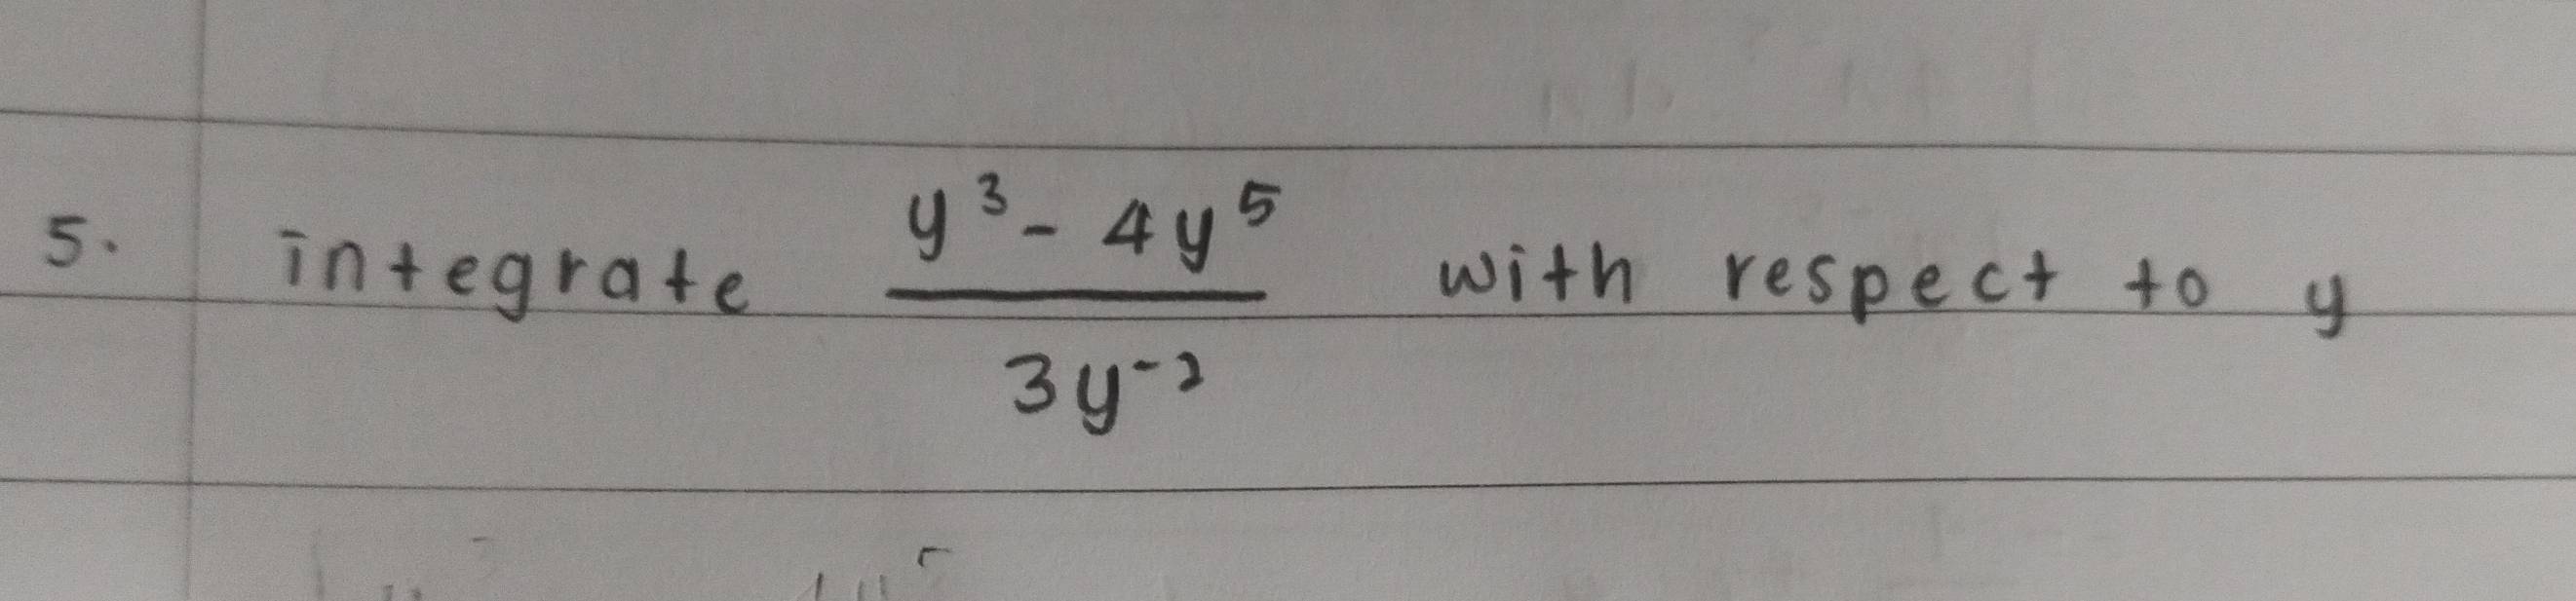 5. integrate \frac{y^3 - 4y^5}{3y^{-2}} with respect to y